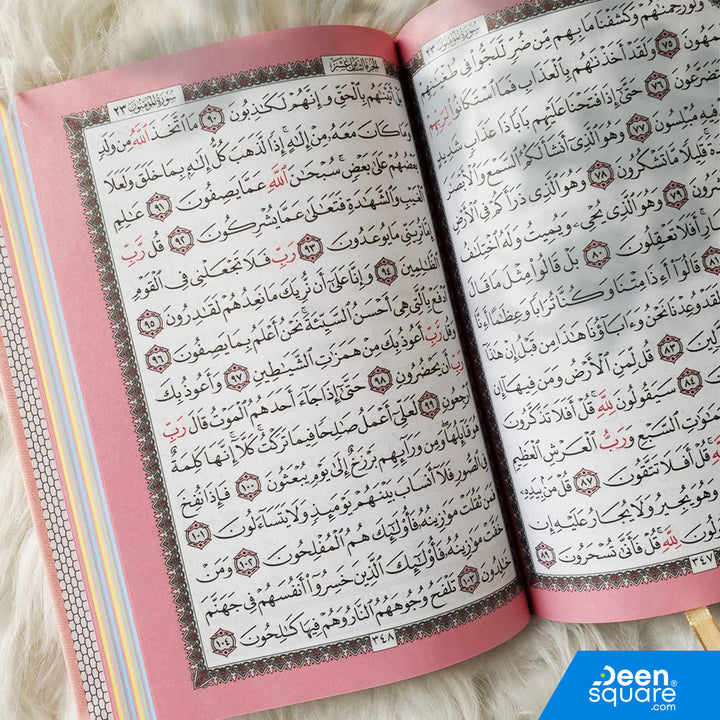 سُورَةُ المُؤْمِنُونَ ٢٣
وَلَوْ رَحِمْنَٰهُمْ وَكَشَفْنَا مَا بِهِم مِّن ضُرٍّ لَّلَجُّوا۟ فِى طُغْيَٰنِهِمْ
٧٥ وَلَقَدْ أَخَذْنَٰهُم بِٱلْعَذَابِ فَمَا ٱسْتَكَانُوا۟ لِرَبِّهِمْ
٧٦ حَتَّىٰٓ إِذَا فَتَحْنَا عَلَيْهِم بَابًا ذَا عَذَابٍ شَدِيدٍ
فِيهِ مُبْلِسُونَ ٧٧ وَهُوَ ٱلَّذِىٓ أَنشَأَ لَكُمُ ٱلسَّمْعَ وَٱلْأَبْصَٰرَ
قَلِيلًا مَّا تَشْكُرُونَ ٧٨ وَهُوَ ٱلَّذِى ذَرَأَكُمْ فِى ٱلْأَرْضِ
٧٩ وَهُوَ ٱلَّذِى يُحْىِۦ وَيُمِيتُ وَلَهُ ٱخْتِلَٰفُ
أَفَلَا تَعْقِلُونَ ٨٠ بَلْ قَالُوا۟ مِثْلَ مَا قَالَ
قَالُوٓا۟ أَءِذَا مِتْنَا وَكُنَّا تُرَابًا وَعِظَٰمًا أَءِنَّا
لَقَدْ وُعِدْنَا نَحْنُ وَءَابَآؤُنَا هَٰذَا مِن قَبْلُ إِنْ هَٰذَآ
٨٣ قُل لِّمَنِ ٱلْأَرْضُ وَمَن فِيهَآ إِن
٨٤ سَيَقُولُونَ لِلَّهِ ۚ قُلْ أَفَلَا تَذَكَّرُونَ
ٱلسَّبْعِ وَرَبُّ ٱلْعَرْشِ ٱلْعَظِيمِ
قُلْ أَفَلَا تَتَّقُونَ ٨٧ قُلْ مَنۢ بِيَدِهِۦ
وَهُوَ يُجِيرُ وَلَا يُجَارُ عَلَيْهِ إِن
لِلَّهِ ۚ قُلْ فَأَنَّىٰ تُسْحَرُونَ ٨٩
٣٤٧
الجزء الثامن عشر
سُورَةُ المُؤْمِنُونَ ٢٣
بَلْ أَتَيْنَٰهُم بِٱلْحَقِّ وَإِنَّهُمْ لَكَٰذِبُونَ ٩٠ مَا ٱتَّخَذَ ٱللَّهُ مِن وَلَدٍ
وَمَا كَانَ مَعَهُۥ مِنْ إِلَٰهٍ ۚ إِذًا لَّذَهَبَ كُلُّ إِلَٰهٍۭ بِمَا خَلَقَ وَلَعَلَا
بَعْضُهُمْ عَلَىٰ بَعْضٍ ۚ سُبْحَٰنَ ٱللَّهِ عَمَّا يَصِفُونَ ٩١ عَٰلِمِ
ٱلْغَيْبِ وَٱلشَّهَٰدَةِ فَتَعَٰلَىٰ عَمَّا يُشْرِكُونَ ٩٢ قُل رَّبِّ
إِمَّا تُرِيَنِّى مَا يُوعَدُونَ ٩٣ رَبِّ فَلَا تَجْعَلْنِى فِى ٱلْقَوْمِ
ٱلظَّٰلِمِينَ ٩٤ وَإِنَّا عَلَىٰٓ أَن نُّرِيَكَ مَا نَعِدُهُمْ لَقَٰدِرُونَ ٩٥
ٱدْفَعْ بِٱلَّتِى هِىَ أَحْسَنُ ٱلسَّيِّئَةَ ۚ نَحْنُ أَعْلَمُ بِمَا يَصِفُونَ ٩٦
وَقُل رَّبِّ أَعُوذُ بِكَ مِنْ هَمَزَٰتِ ٱلشَّيَٰطِينِ ٩٧ وَأَعُوذُ بِكَ
رَبِّ أَن يَحْضُرُونِ ٩٨ حَتَّىٰٓ إِذَا جَآءَ أَحَدَهُمُ ٱلْمَوْتُ قَالَ رَبِّ
ٱرْجِعُونِ ٩٩ لَعَلِّىٓ أَعْمَلُ صَٰلِحًا فِيمَا تَرَكْتُ ۚ كَلَّآ ۚ إِنَّهَا كَلِمَةٌ
هُوَ قَآئِلُهَا ۖ وَمِن وَرَآئِهِم بَرْزَخٌ إِلَىٰ يَوْمِ يُبْعَثُونَ ١٠٠ فَإِذَا نُفِخَ
فِى ٱلصُّورِ فَلَآ أَنسَابَ بَيْنَهُمْ يَوْمَئِذٍ وَلَا يَتَسَآءَلُونَ ١٠١
فَمَن ثَقُلَتْ مَوَٰزِينُهُۥ فَأُو۟لَٰٓئِكَ هُمُ ٱلْمُفْلِحُونَ ١٠٢ وَمَنْ
خَفَّتْ مَوَٰزِينُهُۥ فَأُو۟لَٰٓئِكَ ٱلَّذِينَ خَسِرُوٓا۟ أَنفُسَهُمْ فِى جَهَنَّمَ
خَٰلِدُونَ ١٠٣ تَلْفَحُ وُجُوهَهُمُ ٱلنَّارُ وَهُمْ فِيهَا كَٰلِحُونَ ١٠٤
٣٤٨
Deen
square®
.com